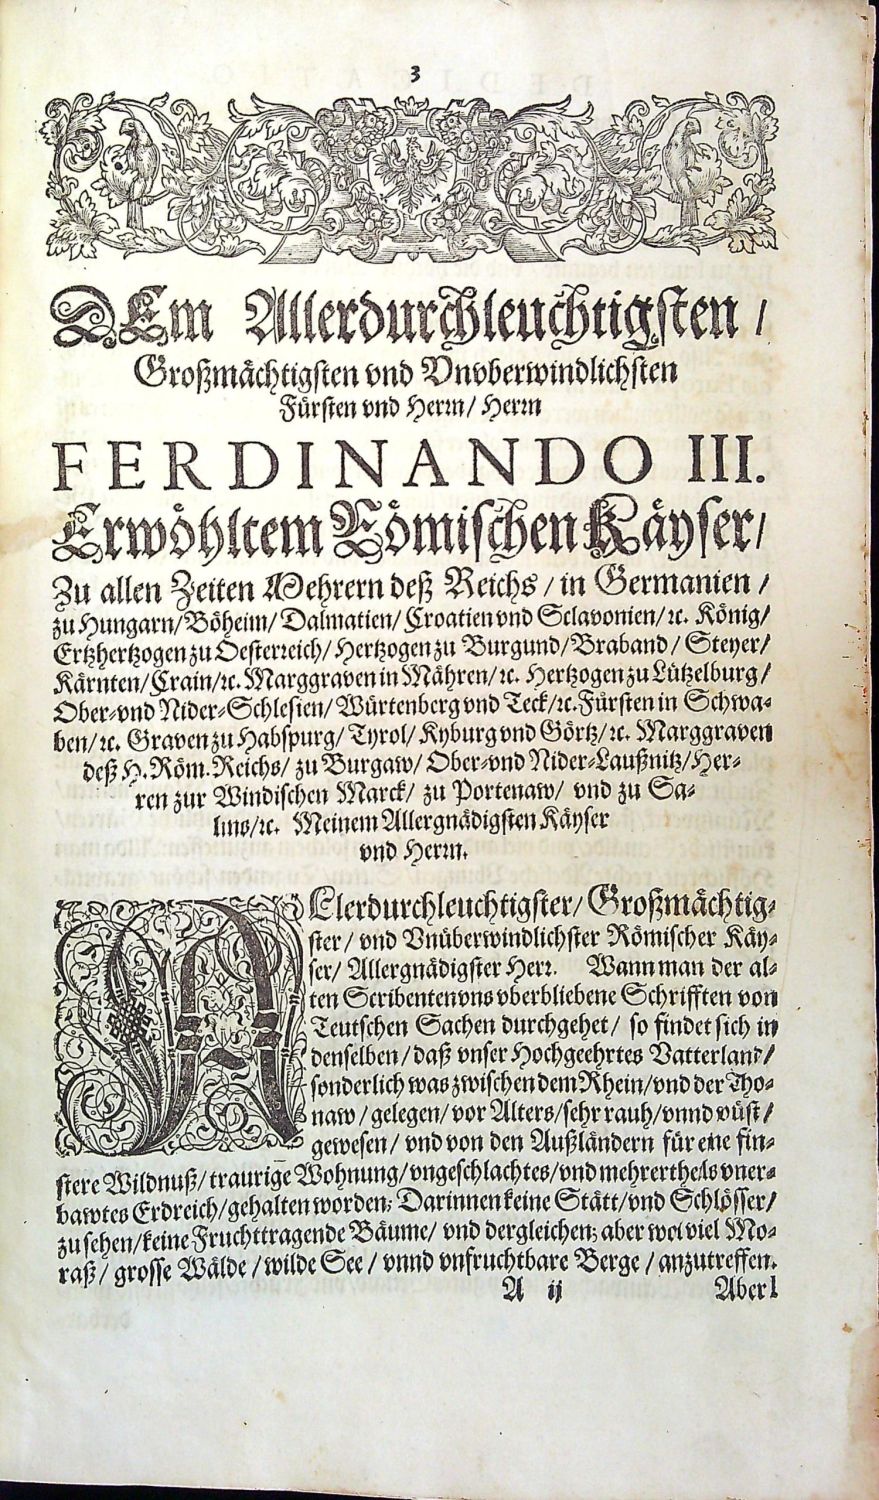 3
DEm Allerdurchleuchtigsten /
Großmächtigsten vnd Vnvberwindlichsten
Fürsten vnd Herrn/ Herrn
FERDINANDO III.
Erwöhltem Römischen Käyser/
Zu allen Zeiten Mehrern deß Reichs / in Germanien /
zu Hungarn/ Böheim/ Dalmatien/ Croatien vnd Sclavonien/ ꝛc. König/
Ertzhertzogen zu Oesterreich/ Hertzogen zu Burgund/ Braband/ Steyer/
Kärnten/ Crain/ ꝛc. Marggraven in Mähren/ ꝛc. Hertzogen zu Lützelburg/
Ober- vnd Nider-Schlesien/ Würtenberg vnd Teck/ ꝛc. Fürsten in Schwa-
ben/ ꝛc. Graven zu Habspurg/ Tyrol/ Kyburg vnd Görtz/ ꝛc. Marggraven
deß H. Röm. Reichs/ zu Burgaw/ Ober- vnd Nider-Laußnitz/ Her-
ren zur Windischen Marck/ zu Portenaw/ vnd zu Sa-
lins/ ꝛc. Meinem Allergnädigsten Käyser
vnd Herrn.
ALlerdurchleuchtigster/ Großmächtig-
ster/ vnd Vnüberwindlichster Römischer Käy-
ser/ Allergnädigster Herr. Wann man der al-
ten Scribenten vns vberbliebene Schrifften von
Teutschen Sachen durchgehet/ so findet sich in
denselben/ daß vnser Hochgeehrtes Vatterland/
sonderlich was zwischen dem Rhein/ vnd der Tho-
naw/ gelegen/ vor Alters/ sehr rauh/ vnnd wüst/
gewesen/ vnd von den Außländern für eine fin-
stere Wildnuß/ traurige Wohnung/ vngeschlachtes/ vnd mehrertheils vner-
bawtes Erdreich/ gehalten worden; Darinnen keine Stätt/ vnd Schlösser/
zu sehen/ keine Fruchttragende Bäume/ vnd dergleichen; aber wol viel Mo-
raß/ grosse Wälde/ wilde See/ vnnd vnfruchtbare Berge/ anzutreffen.
A ij Aber